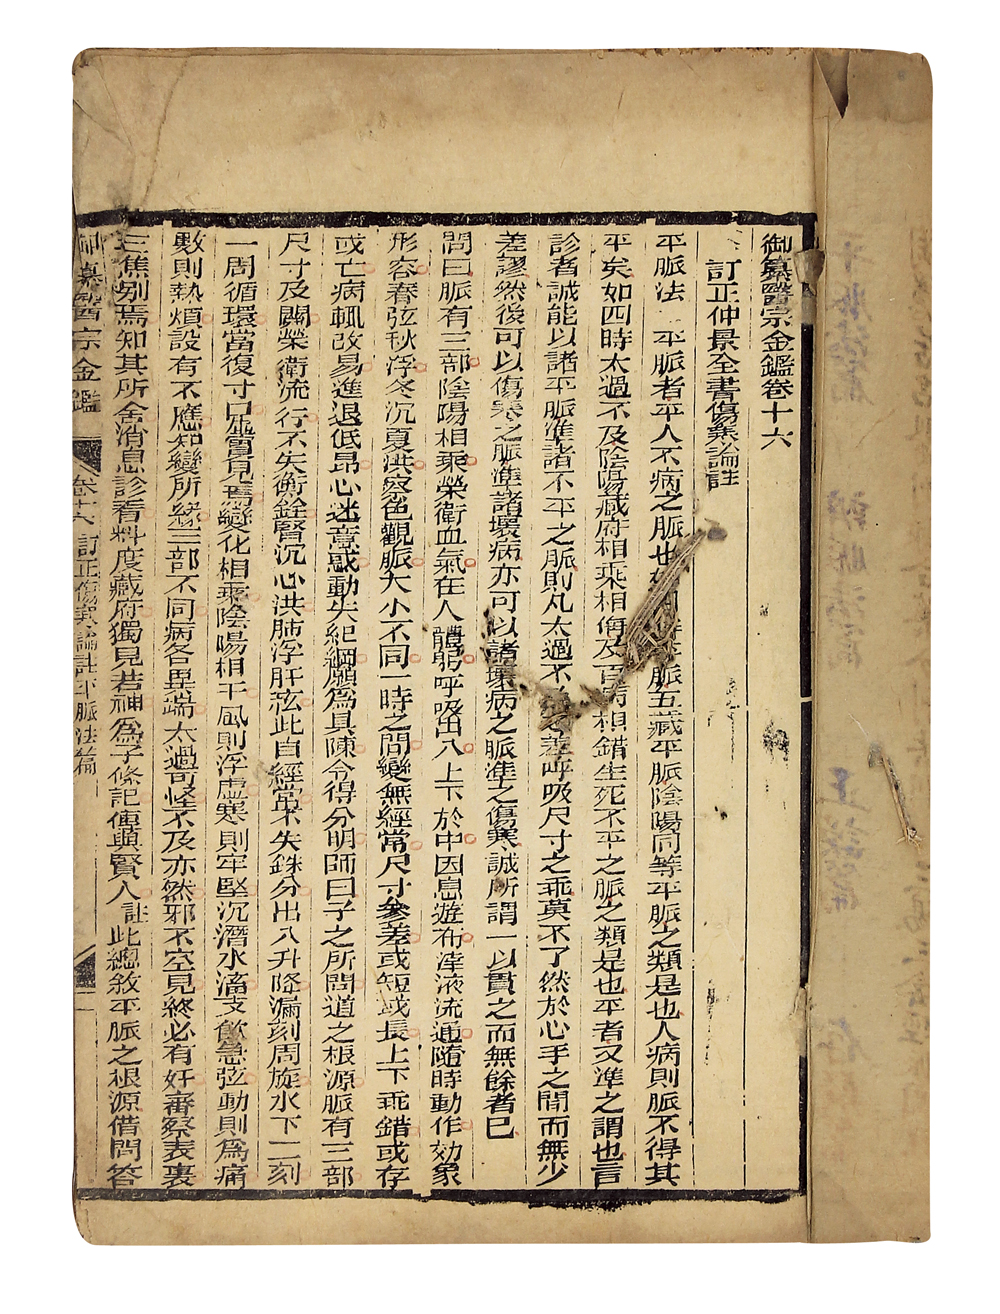 御纂醫宗金鑑卷十六
訂正仲景全書傷寒論註
平脈法 平脈者平人不病之脈也如 脈五藏平脈陰陽同等平脈之類是也人病則脈不得其
平矣如四時太過不及陰陽藏府相乘相侮及百病相錯生死不平之脈之類是也平者又準之謂也言
診者誠能以諸平脈準諸不平之脈則凡太過不 之差呼吸尺寸之乖莫不了然於心手之間而無少
差謬然後可以傷寒之脈準諸壞病亦可以諸壞病之脈準之傷寒誠所謂一以貫之而無餘者已
問曰脈有三部陰陽相乘榮衛血氣在人體躬呼吸出入上下於中因息遊布津液流通隨時動作効象
形容春弦秋浮冬沉夏洪察色觀脈大小不同一時之間變無經常尺寸參差或短或長上下乖錯或存
或亡病輒改易進退低昂心迷意惑動失紀綱願為具陳令得分明師曰子之所問道之根源脈有三部
尺寸及關榮衛流行不失衡銓腎沉心洪肺浮肝弦此自經常不失銖分出入升降漏刻周旋水下二刻
一周循環當復寸口虛實見焉變化相乘陰陽相干風則浮虛寒則牢堅沉潛水滀支飲急弦動則為痛
數則熱煩設有不應知變所緣三部不同病各異端太過可怪不及亦然邪不空見終必有奸審察表裏
三焦別焉知其所舍消息診看料度藏府獨見若神為子條記傳與賢人 註 此總敘平脈之根源借問答
御纂醫宗金鑑 卷十六 訂正傷寒論註平脈法篇